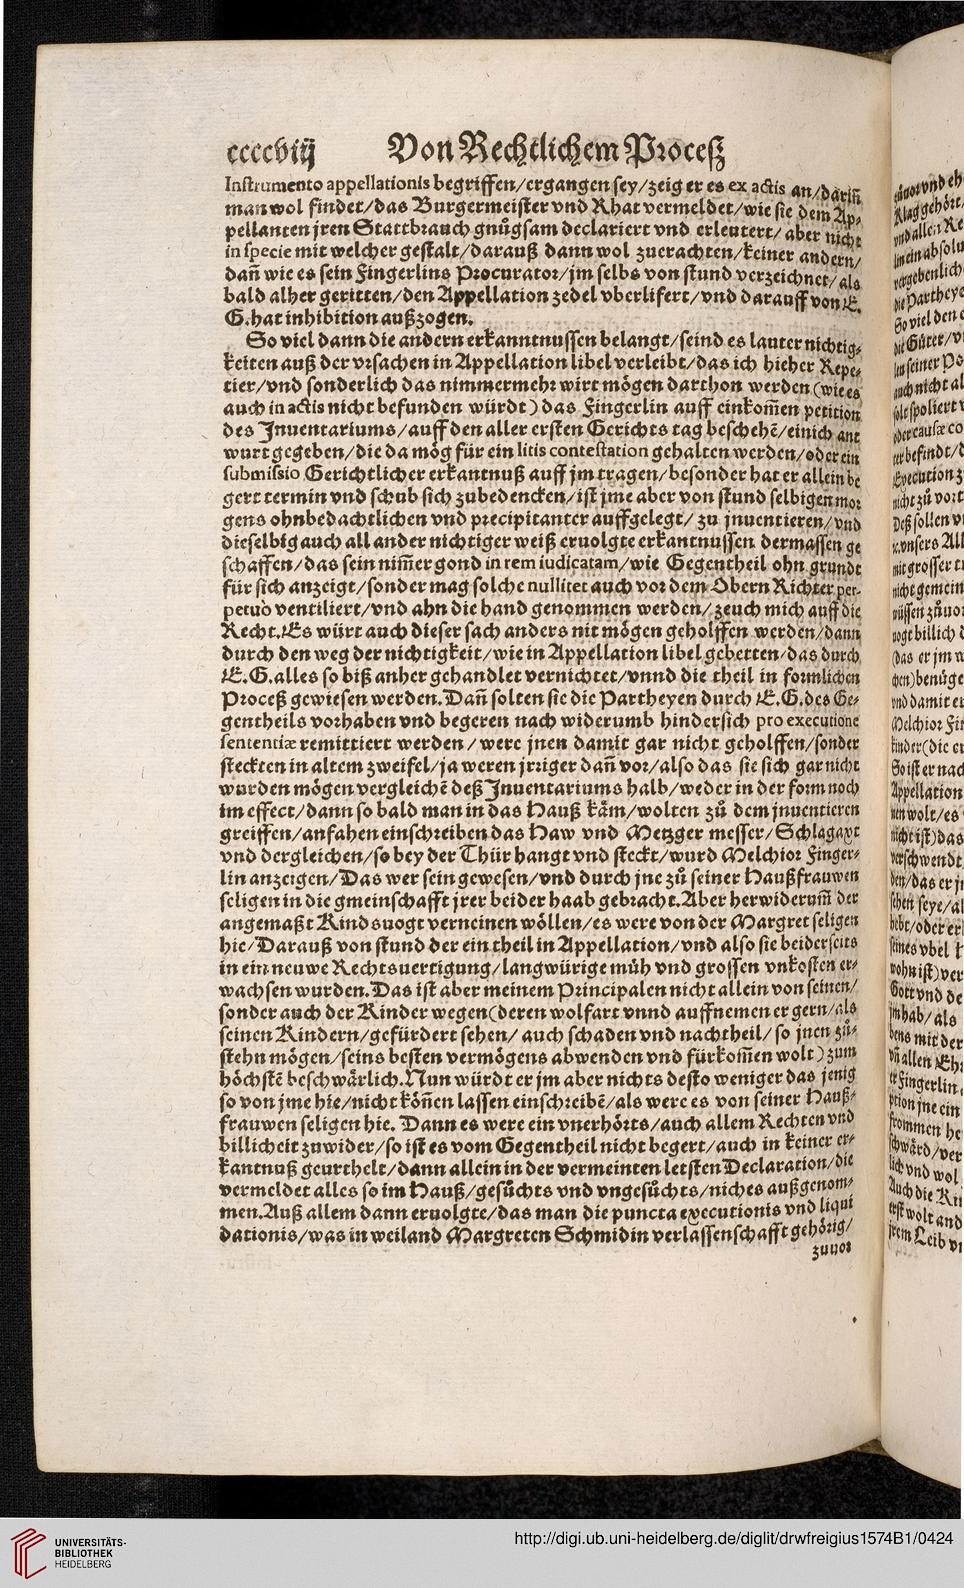 ccccviij Von Rechtlichem Proceß
Instrumento appellationis begriffen/ergangen sey/zeig er es ex actis an/darin̄
man wol findet/das Burgermeister vnd Rhat vermeldet/wie sie dem Ap-
pellanten jren Stattbrauch gnůgsam declariert vnd erleutert/ aber nicht
in specie mit welcher gestalt/darauß dann wol zuerachten/keiner andern/
dan̄ wie es sein Fingerlins Procurator/jm selbs von stund verzeichnet/als
bald alher geritten/den Appellation zedel vberlifert/vnd darauff von E.
G.hat inhibition außzogen.
So viel dann die andern erkanntnussen belangt/seind es lauter nichtig-
keiten auß der vrsachen in Appellation libel verleibt/das ich hieher Repe-
tier/vnd sonderlich das nimmermehr wirt mögen darthon werden (wie es
auch in actis nicht befunden würdt) das Fingerlin auff einkom̄en petition
des Inuentariums/auff den aller ersten Gerichts tag beschehē/einich ant
wurt gegeben/die da mög für ein litis contestation gehalten werden/oder ein
submissio Gerichtlicher erkantnuß auff jm tragen/besonder hat er allein be
gert termin vnd schub sich zubedencken/ist jme aber von stund selbigen mor
gens ohnbedachtlichen vnd precipitanter auffgelegt/ zu jnuentieren/vnd
dieselbig auch all ander nichtiger weiß eruolgte erkantnussen dermassen ge
schaffen/das sein nim̄ergond in rem iudicatam/wie Gegentheil ohn grundt
für sich anzeigt/sonder mag solche nullitet auch vor dem Obern Richter per-
petuò ventiliert/vnd ahn die hand genommen werden/zeuch mich auff die
Recht.Es würt auch dieser sach anders nit mögen geholffen werden/dann
durch den weg der nichtigkeit/wie in Appellation libel gebetten/das durch
E.G.alles so biß anher gehandlet vernichtet/vnnd die theil in formlichen
Proceß gewiesen werden.Dan̄ solten sie die Partheyen durch E.G.des Ge-
gentheils vorhaben vnd begeren nach widerumb hindersich pro executione
sententiæ remittiert werden/were jnen damit gar nicht geholffen/sonder
steckten in altem zweifel/ja weren jrriger dan̄ vor/also das sie sich gar nicht
wurden mögen vergleichē deß Inuentariums halb/weder in der form noch
im effect/dann so bald man in das Hauß käm/wolten zů dem jnuentieren
greiffen/anfahen einschreiben das Haw vnd Metzger messer/Schlagaxt
vnd dergleichen/so bey der Thür hangt vnd steckt/wurd Melchior Finger-
lin anzeigen/Das wer sein gewesen/vnd durch jne zů seiner Haußfrauwen
seligen in die gmeinschafft jrer beider haab gebracht.Aber herwiderum̄ der
angemaßt Kindsuogt verneinen wöllen/es were von der Margret seligen
hie/Darauß von stund der ein theil in Appellation/vnd also sie beiderseits
in ein neuwe Rechtsuertigung/langwürige müh vnd grossen vnkosten er-
wachsen wurden.Das ist aber meinem Principalen nicht allein von seinen/
sonder auch der Kinder wegen(deren wolfart vnnd auffnemen er gern/als
seinen Kindern/gefürdert sehen/ auch schaden vnd nachtheil/so jnen zů-
stehn mögen/seins besten vermögens abwenden vnd fürkom̄en wolt) zum
höchstē beschwärlich.Nun würdt er jm aber nichts desto weniger das jenig
so von jme hie/nicht kön̄en lassen einschreibē/als were es von seiner Hauß-
frauwen seligen hie. Dann es were ein vnerhörts/auch allem Rechten vnd
billicheit zuwider/so ist es vom Gegentheil nicht begert/auch in keiner er-
kantnuß geurthelt/dann allein in der vermeinten letsten Declaration/die
vermeldet alles so im Hauß/gesůchts vnd vngesůchts/niches außgenom-
men.Auß allem dann eruolgte/das man die puncta executionis vnd liqui
dationis/was in weiland Margreten Schmidin verlassenschafft gehörig/
zuuor
UNIVERSITÄTS-
BIBLIOTHEK
HEIDELBERG
http://digi.ub.uni-heidelberg.de/diglit/drwfreigius1574B1/0424